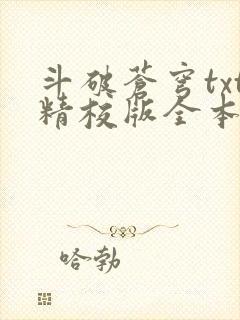 斗破苍穹txt
精校版全本
哈勃